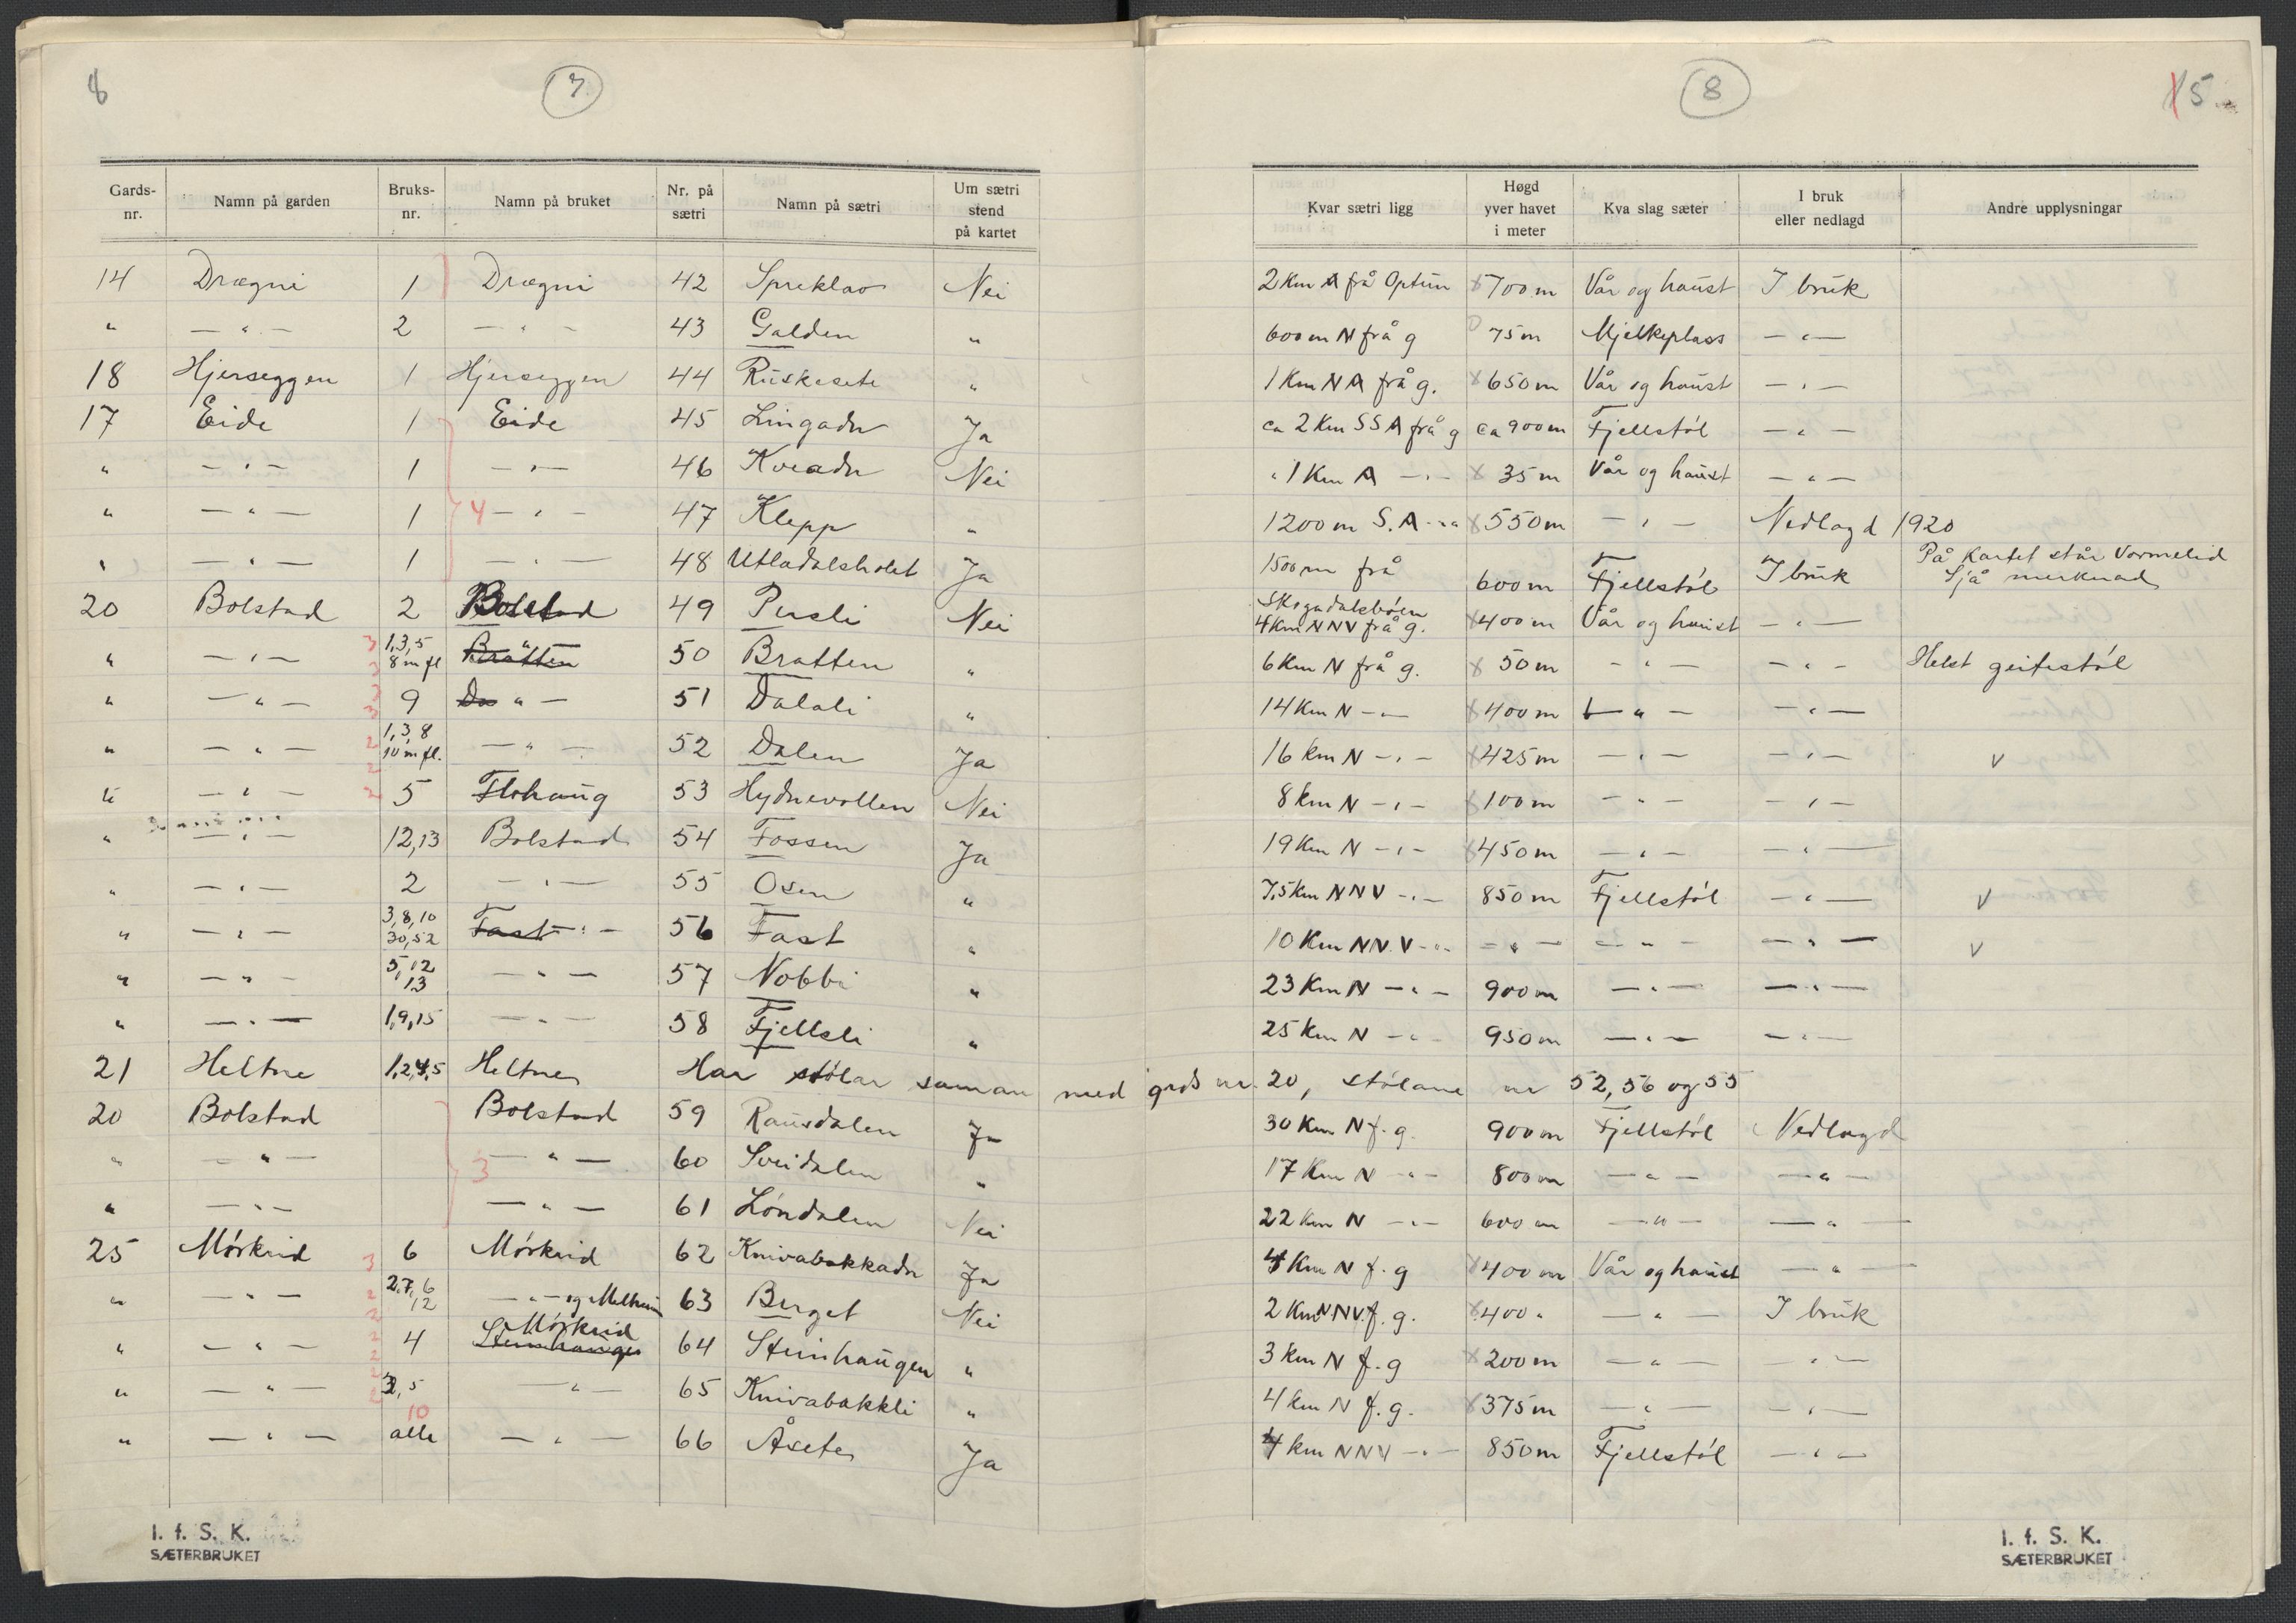 8 7
8 15
Gards-nr. Namn på garden Bruks-nr. Namn på bruket Nr. på sætri Namn på sætri Um sætri stend på kartet
Kvar sætri ligg Høgd yver havet i meter Kva slag sæter I bruk eller nedlagd Andre upplysningar
14 Drægni 1 Drægni 42 Spreklao Nei 2 Km A frå Optun x 700 m Vår og haust I bruk
" — " — 2 — " — 43 Galden " 600 m N frå g 75 m Mjelkeplass — " —
18 Hjerseggen 1 Hjerseggen 44 Ruskesete " 1 Km N A frå g. x 650 m Vår og haust — " —
17 Eide 1 Eide 45 Lingadn Ja ca 2 Km SSA frå g ca 900 m Fjellstøl — " —
" — " — 1 — " — 46 Kveadn Nei " 1 Km A — " — x 35 m Vår og haust — " —
" — " — 1 4 — " — 47 Klepp " 1200 m S.A — " — x 550 m — " — Nedlagd 1920
" — " — 1 — " — 48 Utladalsholet Ja 1500 m frå Skogadalsbøen 600 m Fjellstøl I bruk På kartet står Vormelid Sjå merknad
20 Bolstad 2 Bolstad 49 Pusli Nei 4 Km NNV frå g. x 400 m Vår og haust — " —
" — " — 3 1,3,5 8 m fl Bratten " 50 Bratten " 6 Km N frå g. x 50 m — " — — " — Helst geitestøl
" — " — 9 Da " — 51 Dalali " 14 Km N — " — x 400 m — " — — " —
" — " — 1,3,8 10 m fl. — " — 52 Dalen Ja 16 km N — " — x 425 m — " — — " — v
" — " — 5 Flohaug 53 Hydnevollen Nei 8 km N — " — x 100 m — " — — " —
" — " — 12,13 Bolstad 54 Fossen Ja 19 Km N — " — x 450 m — " — — " —
" — " — 2 — " — 55 Osen " 7,5 Km NNV — " — 850 m Fjellstøl — " — v
" — " — 3,8,10 30,52 Fast — " — 56 Fast " 10 Km NNV — " — — " — — " — — " — v
" — " — 5,12 13 — " — 57 Nobbi " 23 Km N — " — 900 m — " — — " —
" — " — 1,9,15 — " — 58 Fjellsli " 25 Km N — " — 950 m — " — — " —
21 Heltne 1,2,4,5 Heltne Har stølar saman med grds nr. 20, stølane nr 52, 56 og 55
20 Bolstad Bolstad 59 Rausdalen Ja 30 Km N f. g. 900 m Fjellstøl Nedlagd
" — " — 3 — " — 60 Sveidalen " 17 Km N — " — 800 m — " — — " —
" — " — — " — 61 Løndalen Nei 22 Km N — " — 600 m — " — — " —
25 Mørkrid 3 6 Mørkrid 62 Knivabakkadn Ja 4 Km N f. g x 400 m Vår og haust — " —
" — " — 2,7,6 12 — " — og Melheim 63 Berget Nei 2 Km NNV. f. g. x 400 " — " — I bruk
" — " — 4 Mørkrid Steinhaugen 64 Steinhaugen " 3 Km N f. g x 200 m — " — — " —
" — " — 3,5 — " — 65 Knivabakkli " 4 km N f. g. x 375 m — " — — " —
" — " — 10 alle — " — 66 Åsete Ja 4 km NNV — " — 850 m Fjellstøl — " —
I. f. S. K.
SÆTERBRUKET
I. f. S. K.
SÆTERBRUKET